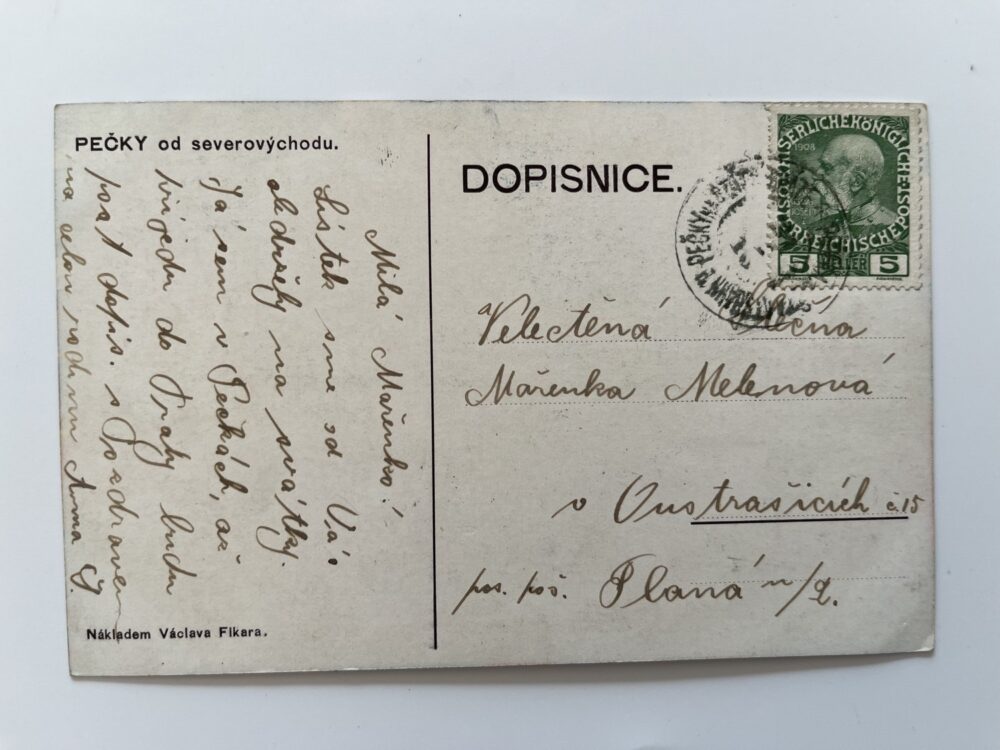 PEČKY od severovýchodu.
DOPISNICE.
Milá Mařenko!
Lístek sme od Vás
obdržely na svátky.
Já sem v Pečkách, až
přijedu do Prahy budu
psát dopis. s Pozdravem
na celou rodinu Anna
Nákladem Václava Fikara.
KAISERLICHE KÖNIGLICHE POST
1908
ÖSTERREICHISCHE
5 HELLER 5
PEČKY
Velectěná slečna
Mařenka Melenová
v Oustrašicích č.15
pos. poš. Planá n/L.